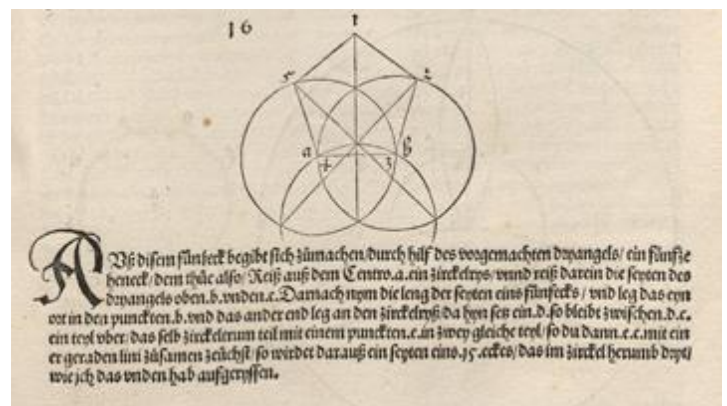 16
1
5 2
a b
4 3
Auß disem fünfeck begibt sich zůmachen/durch hilf des vorgemachten dryangels/ ein fünfze
heneck/dem thůe also/Reiß auß dem Centro.a.ein zirckelrys/vnnd reiß darein die seyten des
dryangels oben.b.vnden.c.Darnach nym die leng der seyten eins fünfecks/ vnd leg das eyn
ort in den puncktten.b.vnd das ander end leg an den zirckelryß da hyn setz ein.d.so bleibt zwischen.d.c.
ein teyl vber/das selb zirckelerum teil mit einem puncktten.e.in zwey gleiche teyl/so du dann.e.c.mit ein
er geraden lini zůsamen zeüchst/so wirdet darauß ein seyten eins.15.eckes/das im zirckel herumb dryt/
wie jch das vnden hab aufgeryssen.